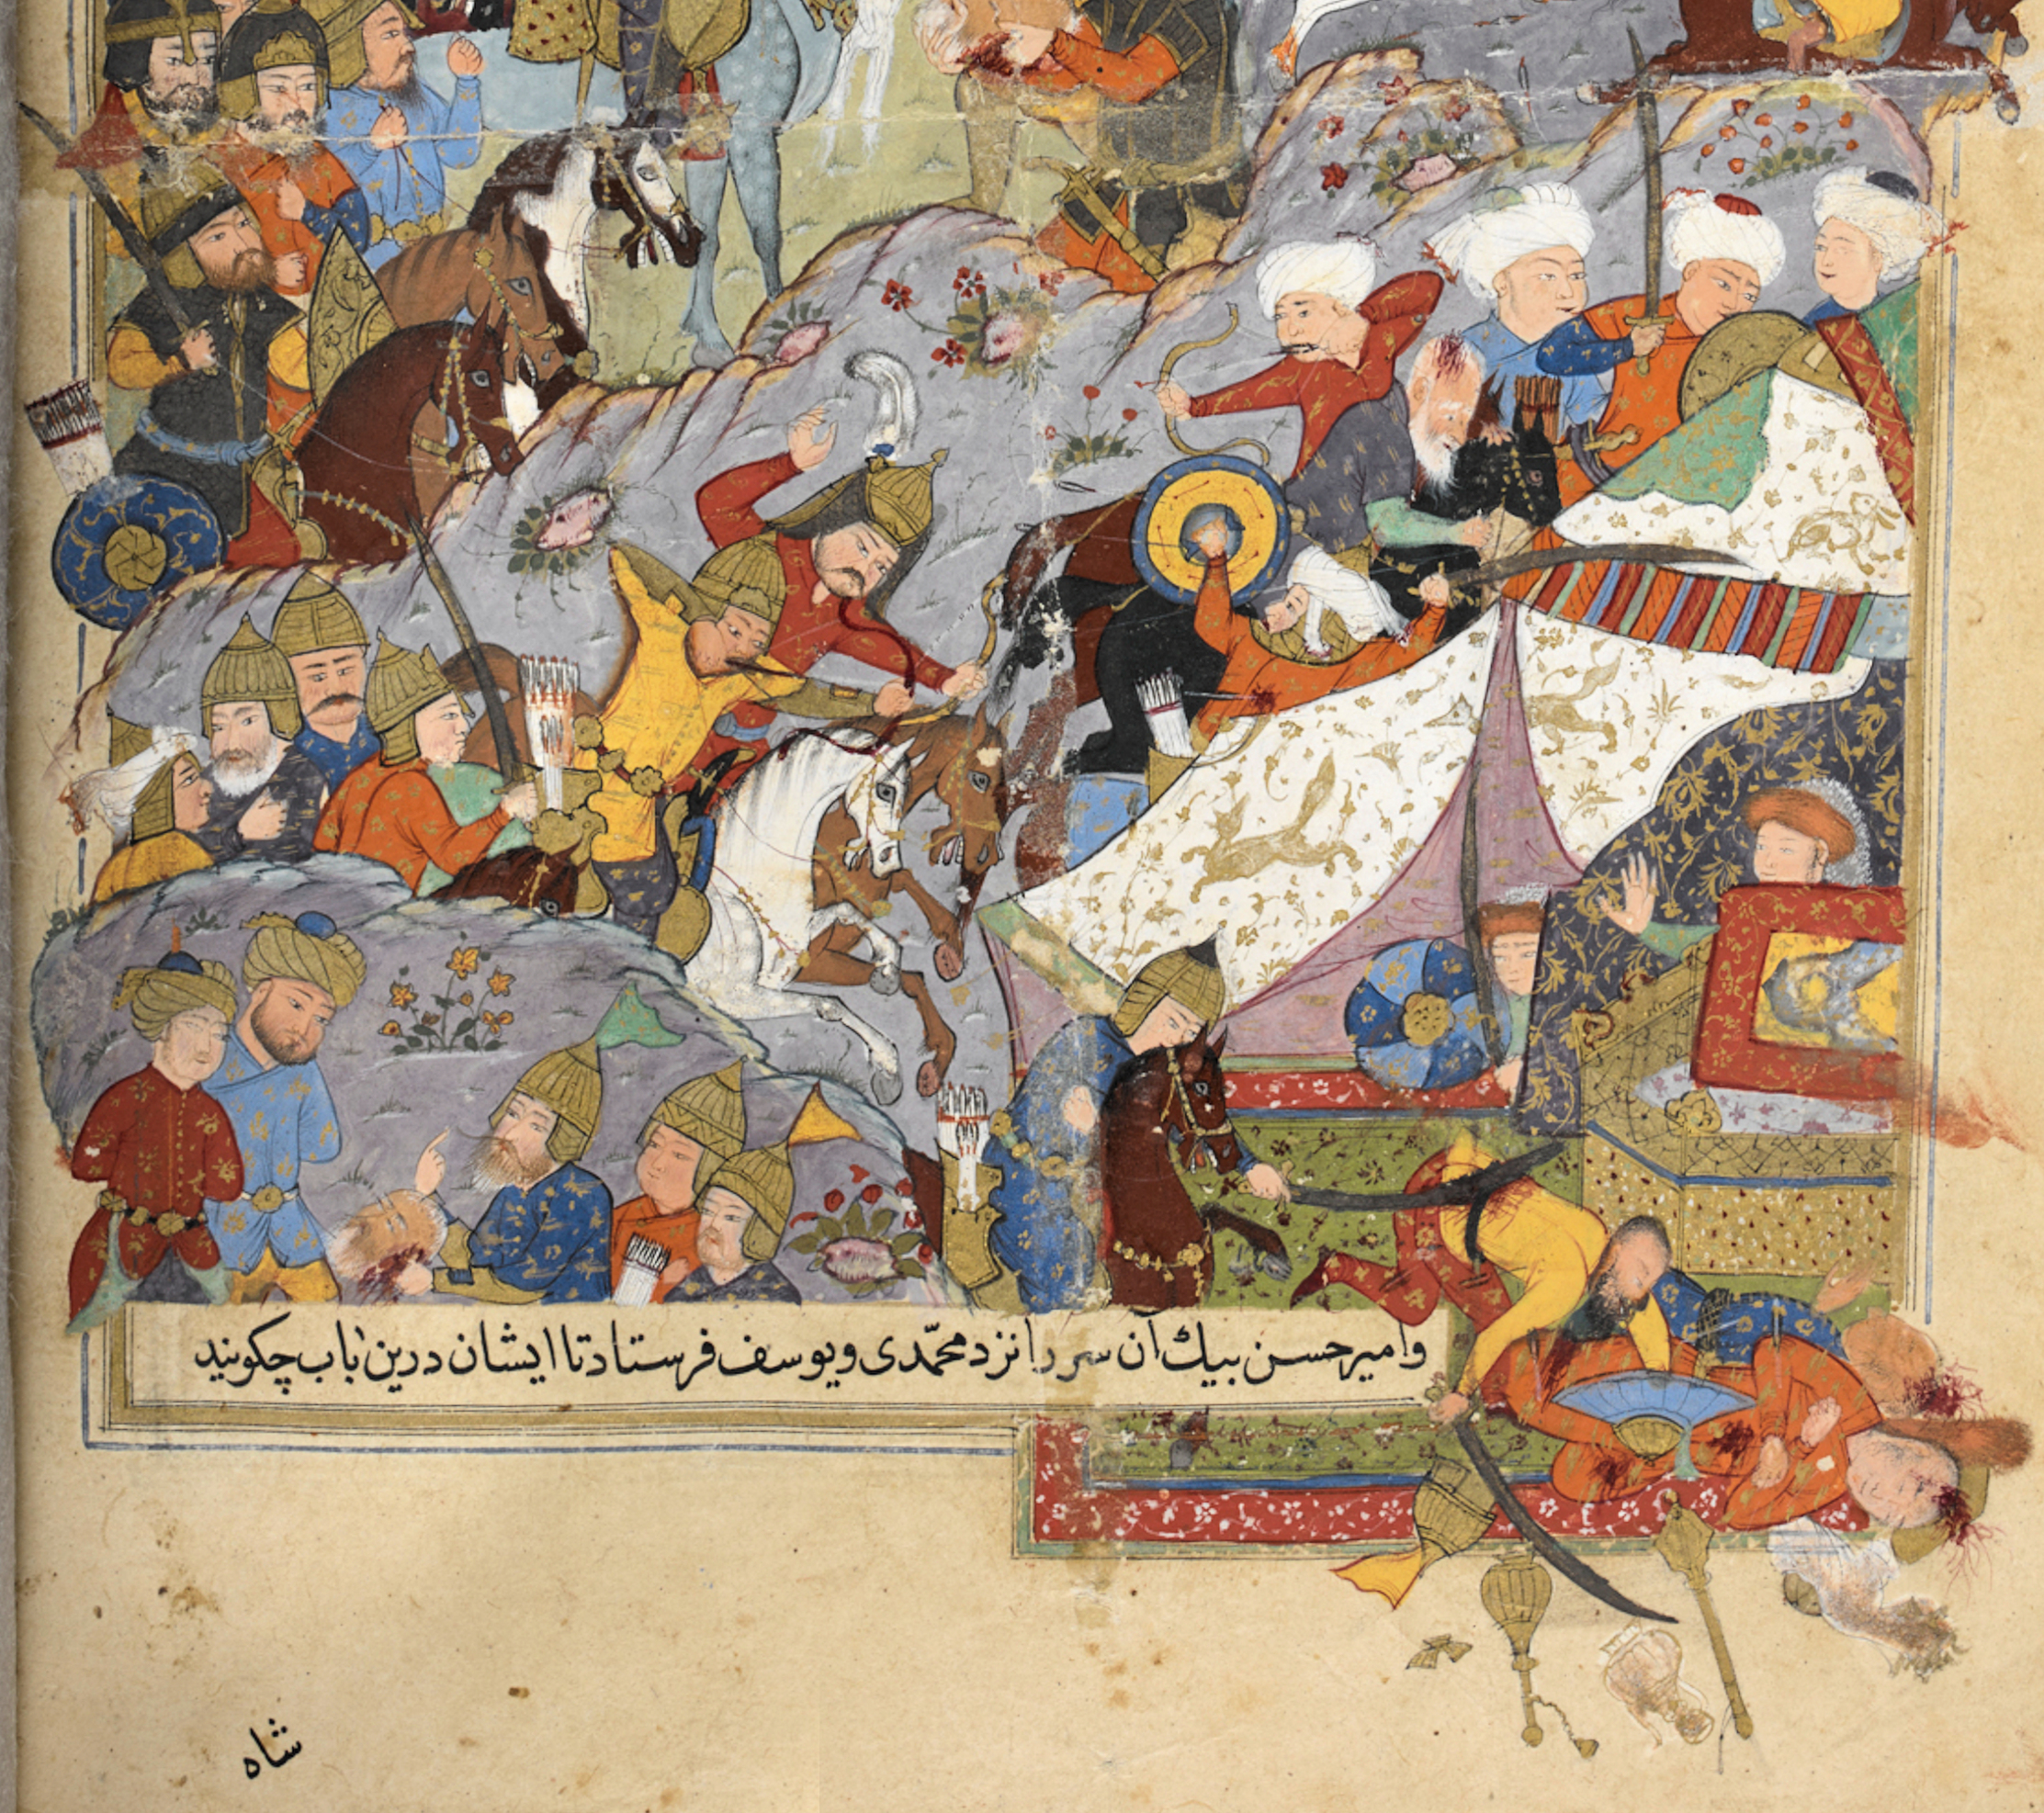 و امیر حسن بیك آن سر را نزد محمّدی و یوسف فرستاد تا ایشان درین باب چکویند
شاه